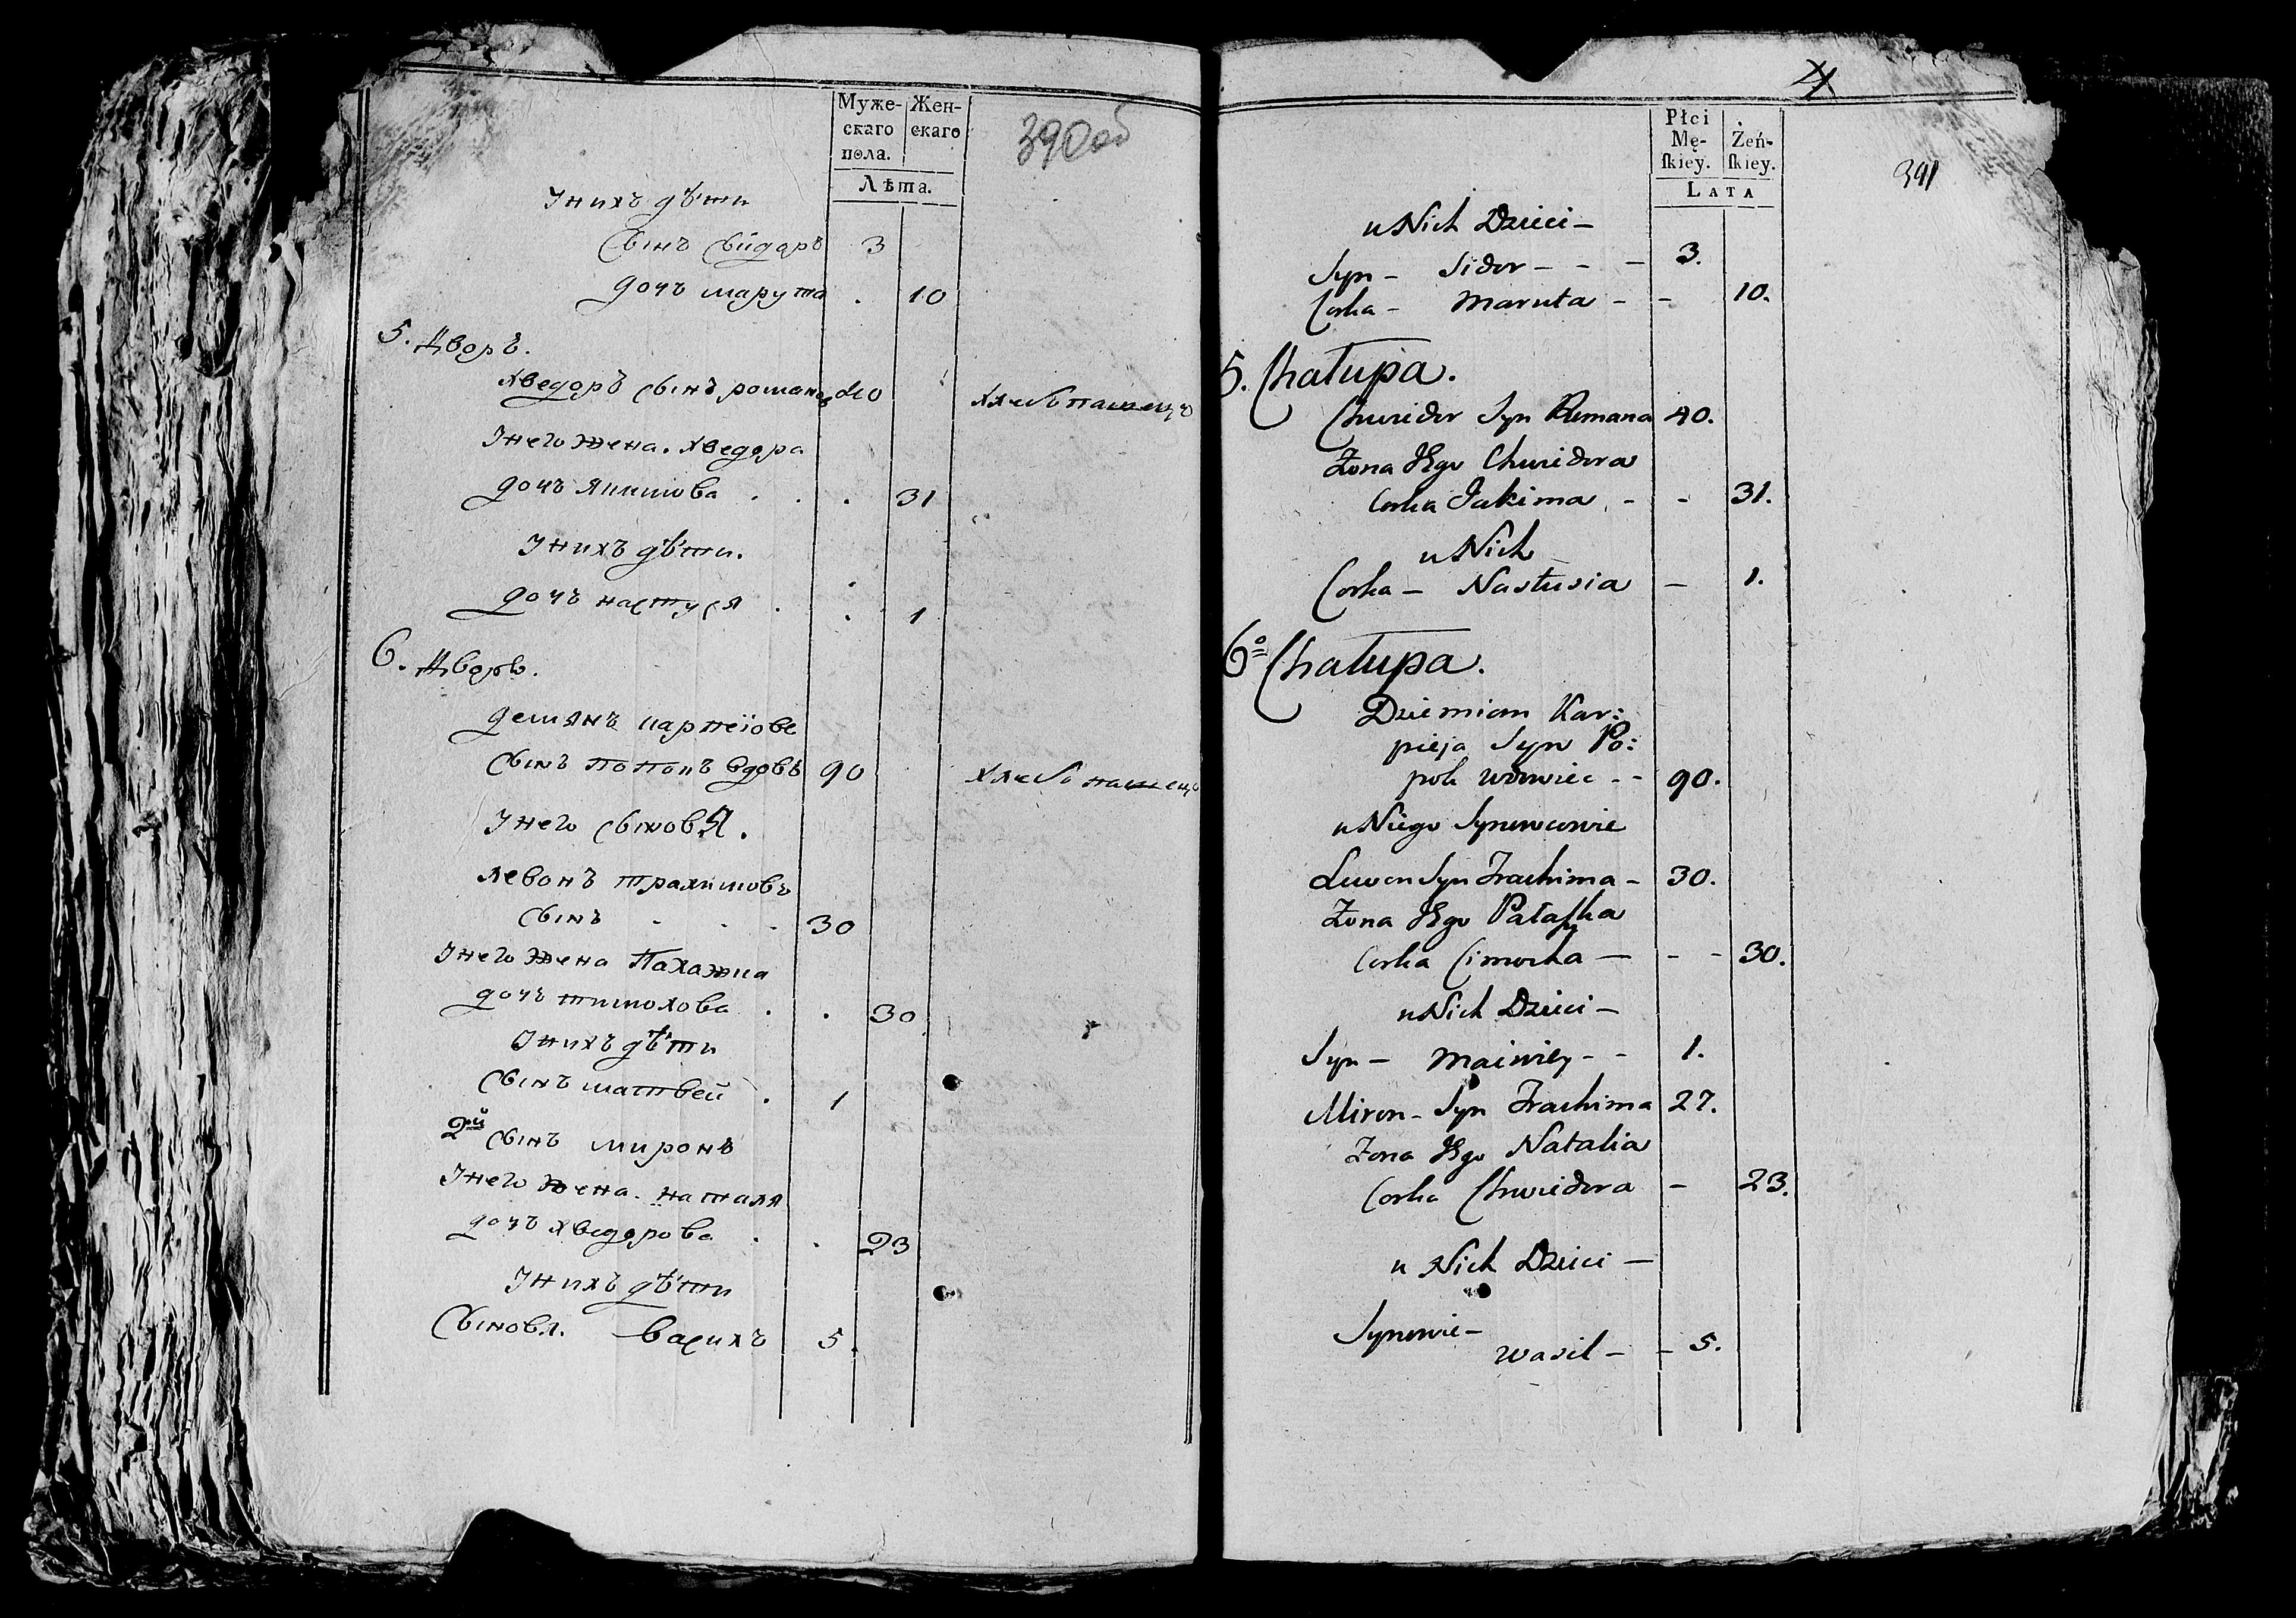 Муже- Жен-
скаго скаго
пола.
Лѣта.
390об
Унихъ дѣти
Сынъ Сидаръ 3
дочъ марута . 10
5. Дворъ.
Хведоръ Сынъ романовъ 40 хлебопашецъ
Унего жена. хведора
дочъ Якимова . . . 31
Унихъ дѣти.
дочъ настуся . . 1
6. Дворъ.
демянъ карпеіовъ
Сынъ попокъ вдовъ 90 хлебопашецъ
Унего Сыновя.
левонъ трахимовъ
Сынъ . . . 30
Унего жена Палажка
дочъ тимохова . . 30
Унихъ дѣти
Сынъ матвей . 1
2й Сынъ миронъ
Унего жена. наталя
дочъ хведорова . . 23
Унихъ дѣти
Сыновя. василь 5.
Płci
Mę- Żeń-
ſkiey. ſkiey.
LATA
391
u Nich Dzieci –
Syn – Sidor – – – 3.
Corka – Maruta – – 10.
5. Chałupa.
Chwiedor Syn Romana 40.
Żona Jego Chwiedora
Corka Jakima – – 31.
u Nich
Corka – Nastusia – 1.
6º Chałupa.
Dziemian Kar:
pieja Syn Po:
pok wdowiec – – 90.
u Niego Synowcowie
Lewon Syn Trachima – 30.
Żona Jego Pałaſzka
Corka Cimocha – – – 30.
u Nich Dzieci –
Syn – Maciviey – – 1.
Miron – Syn Trachima 27.
Żona Jego Natalia
Corka Chwiedora – 23.
u Nich Dzieci –
Synowie –
Wasil – – 5.